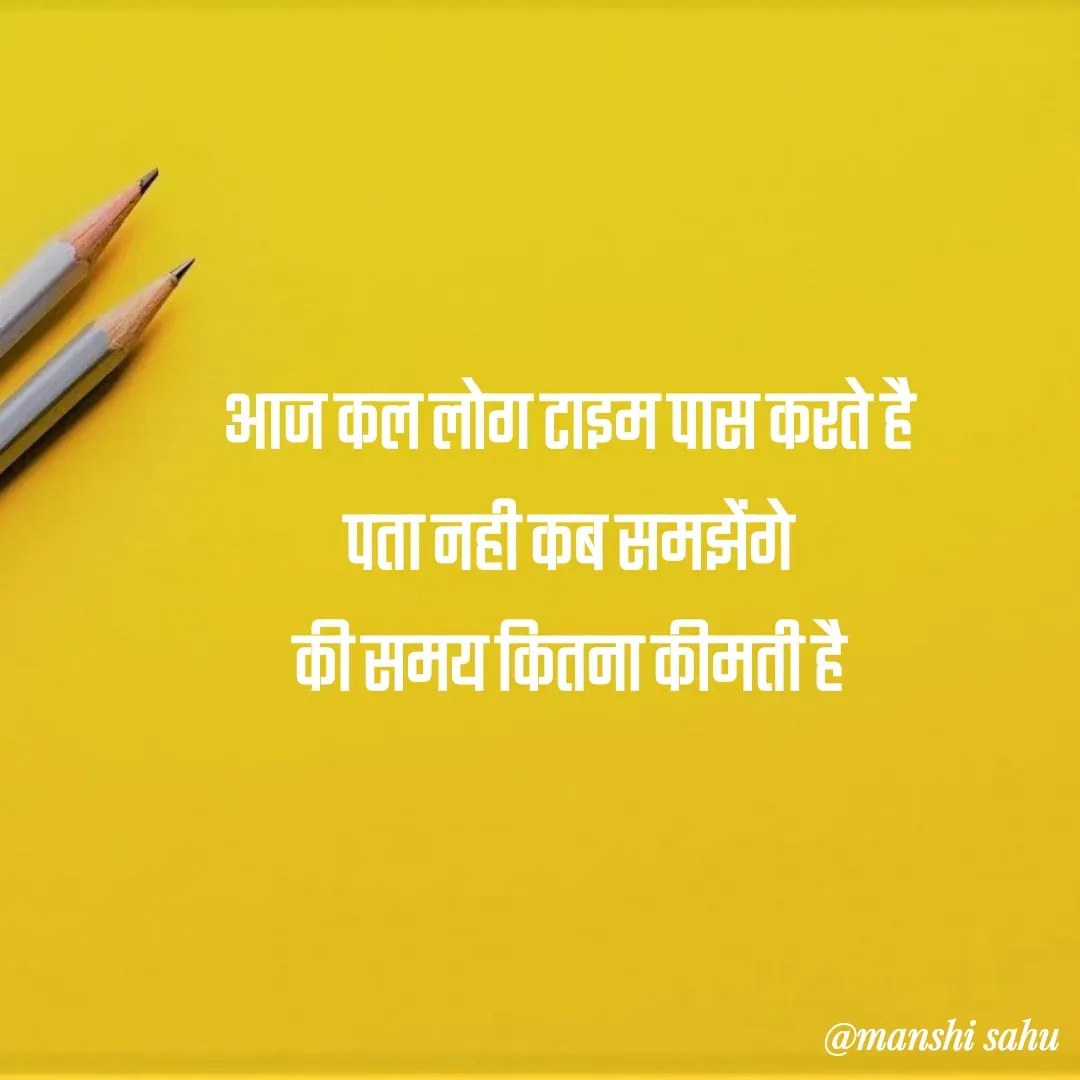 आज कल लोग टाइम पास करते है
पता नही कब समझेंगे
की समय कितना कीमती है
@manshi sahu